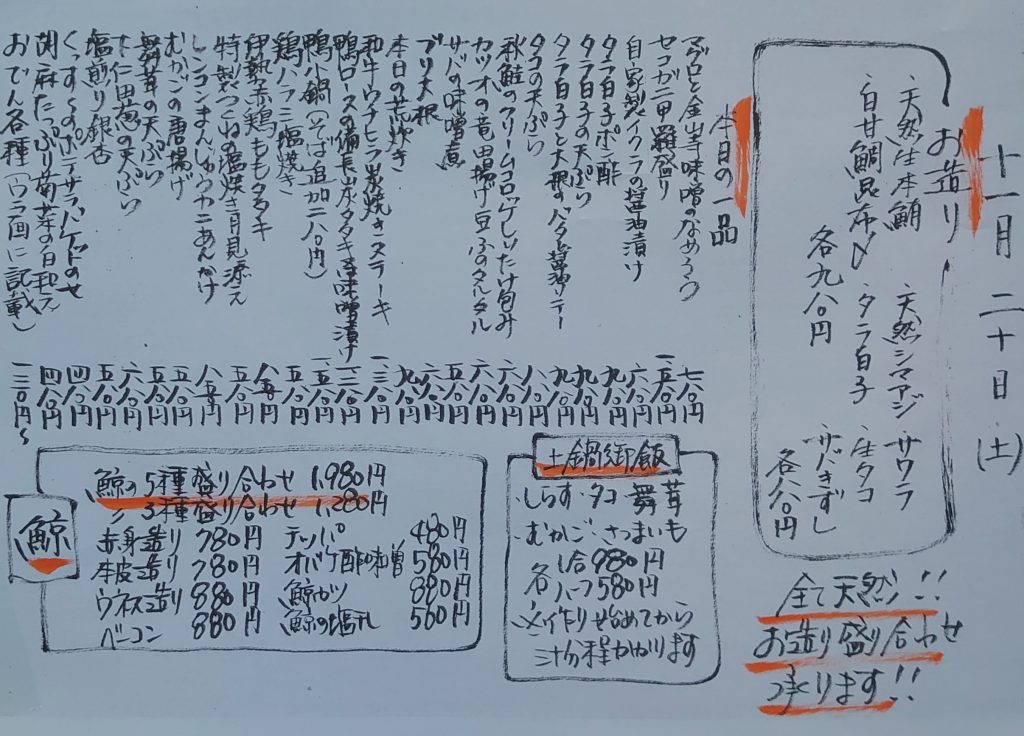 十一月二十日(土)
お造り
・天然生本鮪 ・天然シマアジ ・サワラ
・白甘鯛昆布〆 ・タラ白子 ・生タコ
・サバきずし
各九八〇円
各八八〇円
全て天然!!
お造り盛り合わせ
承ります!!
本日の一品
マグロと金山寺味噌のなめろう 七八〇円
セコガニ甲羅盛り 一、五八〇円
自家製イクラの醤油漬け 六八〇円
タラ白子ポン酢 九八〇円
タラ白子の天ぷら 九八〇円
タラ白子と大根のバタ醤油ソテー 九八〇円
タコの天ぷら 八八〇円
秋鮭のクリームコロッケしいたけ包み 六八〇円
カツオの竜田揚げ豆ふのタルタル 六八〇円
サバの味噌煮
ブリ大根
本日の荒炊き 九八〇円
和牛ウチヒラ炭焼のステーキ 一、三八〇円
鴨ロースの備長炭タタキ 味噌漬け
鴨小鍋(そば追加二八〇円) 一、五八〇円
鶏ハラミ塩焼き 五八〇円
伊勢赤鶏ももタタキ 八五〇円
特製つくねの塩焼き月見添え 五八〇円
レンコンまんじゅうカニあんかけ 八五〇円
むかごの唐揚げ 五八〇円
舞茸の天ぷら 五八〇円
下仁田葱の天ぷら 六八〇円
塩煎り銀杏
くっすーのポテサラバケットのせ 四八〇円
胡麻たっぷり菊菜の白和え 四八〇円
おでん各種(ウラ面に記載) 一三〇円〜
土鍋御飯
・しらす・タコ・舞茸
・むかご・さつまいも
各 1合980円
ハーフ580円
※作り始めてから
三十分程かかります
鯨
鯨の5種盛り合わせ 1,980円
〃 3種盛り合わせ 1,280円
赤身造り 780円 テッパ 480円
本皮造り 780円 オバケ酢味噌 580円
ウネス造り 880円 鯨ガツ 880円
ベーコン 880円 鯨の塩タレ 580円